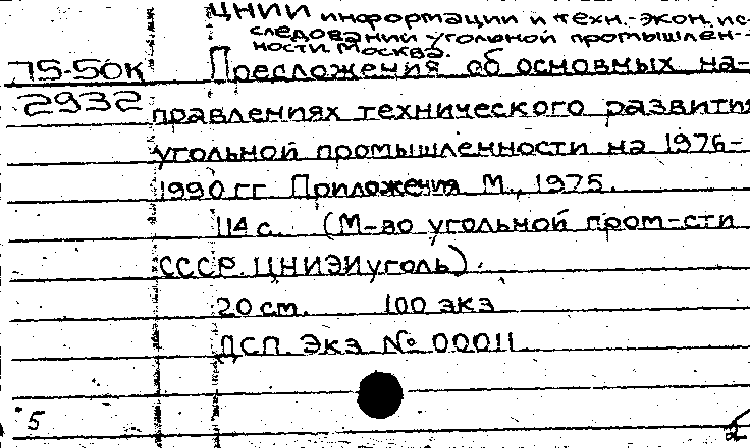 ЦНИИ информации и техн.-экон. ис-
следований угольной промышлен-
ности. Москва.
75-50к Предложения об основных на-
2932 правлениях технического развития
угольной промышленности на 1976-
1990 гг Приложения М., 1975.
114 с. (М-во угольной пром-сти
СССР. ЦНИЭИуголь).
20 см. 100 экз
ДСП. Экз № 00011.
5